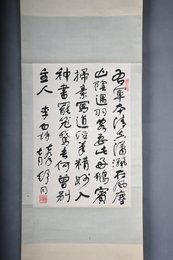 右軍本清真瀟灑在風塵
山陰遇羽客要此好鵝賓
掃素寫道經筆精妙入
神書罷籠鵝去何曾別
主人 李白詩 舒同